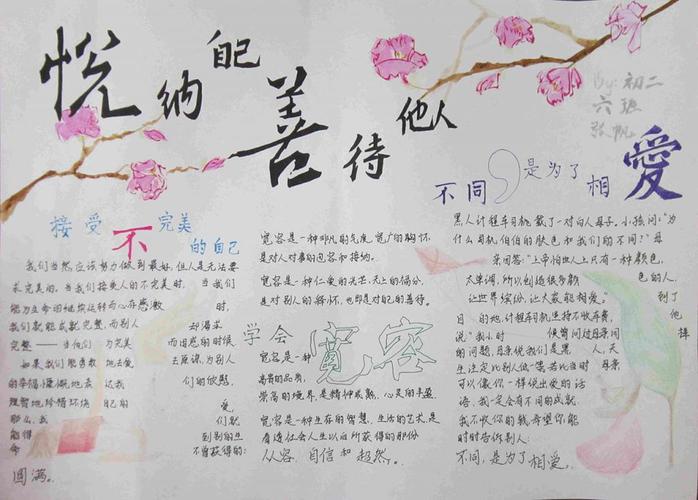 悦纳自己
善待他人
By: 初二
六班
张帆
接受不完美
的自己
我们当然应该努力做到最好,但人是无法要
求完美的。当我们接受人的不完美时,当我们
能为生命的继续运转而心存感激时,
我们就能成就完整,而别人却渴求
完整——当他们为完美而困惑的时候
如果我们能勇敢地去爱、去原谅,为别人
的幸福慷慨地表达我们的欣慰,
理智地珍惜环绕自己的爱,
那么,我们就
能得到别的生
命不曾获得的:
圆满。
宽容是一种非凡的气度、宽广的胸怀,
是对人对事的包容和接纳。
宽容是一种仁爱的光芒、无上的福分,
是对别人的释怀,也即是对自己的善待。
学会宽容
宽容是一种
高贵的品质,
崇高的境界,是精神成熟、心灵的丰盈
宽容是一种生存的智慧、生活的艺术,是
看透社会人生以后所获得的那份
从容、自信和超然。
不同,是为了相愛
黑人计程车司机载了一对白人母子。小孩问:“为
什么司机伯伯的肤色和我们的不同?”母
亲回答:“上帝怕世人上只有一种颜色,
太单调,所以创造很多颜色的人,
让世界缤纷,让大家能相爱。”到了
目的地,计程车司机坚持不收车费,他
说“我小时候曾问过母亲同样
的问题,母亲说我们是黑人,天
生注定比别人低一等若比当时母亲
可以像你一样说出爱的话
语,我一定会有不同的成就
我不收你的钱,希望你能
时时告诉别人:
不同,是为了相爱。